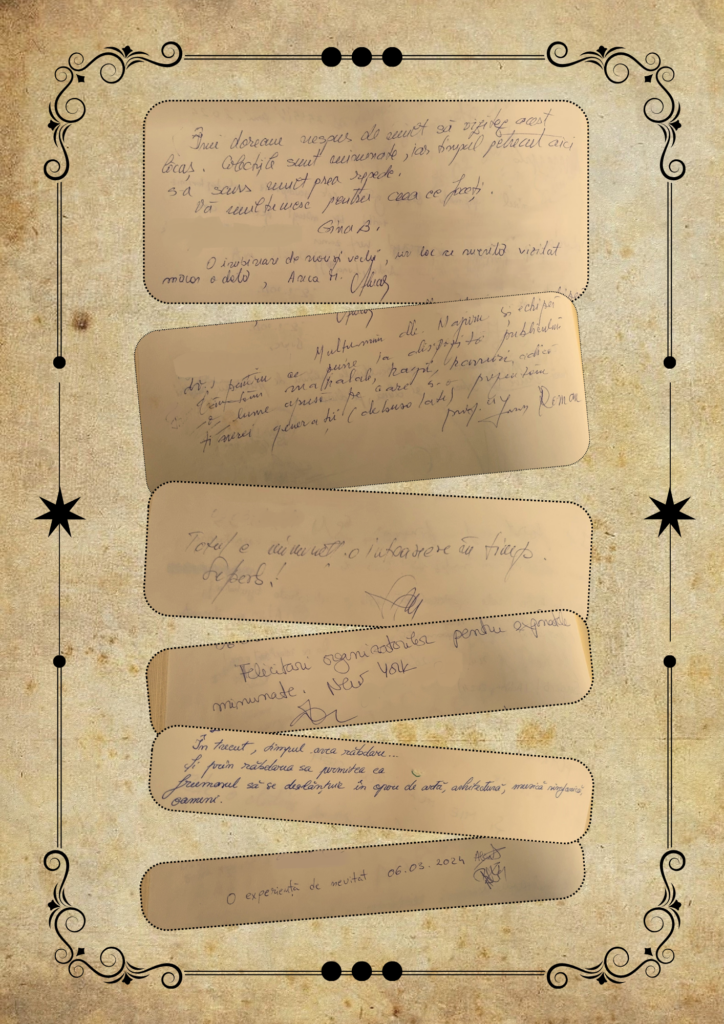 Îmi doream nespus de mult să vizitez acest
locaș. Colecțiile sunt minunate, iar timpul petrecut aici
s-a scurs mult prea repede.
Vă mulțumesc pentru ceea ce faceți.
Gina B.
O îmbinare de nou și vechi, un loc ce merită vizitat
măcar o dată, Anca M.
Mulțumim dlui Marius și echipei
pentru ce pune la dispoziția publicului
mahalale, hagii, adică
o lume apusă pe care s-o prezentăm
tinerei generații
prof.
Totul e minunat. o întoarcere în timp.
Superb!
Felicitări organizatorilor pentru
minunate. New York
În trecut, timpul avea răbdare...
Și prin răbdarea sa permitea ca
frumosul să se deslănțuie în opere de artă, arhitectură, muzică simfonică,
oameni.
O experiență de neuitat 06.03.2024